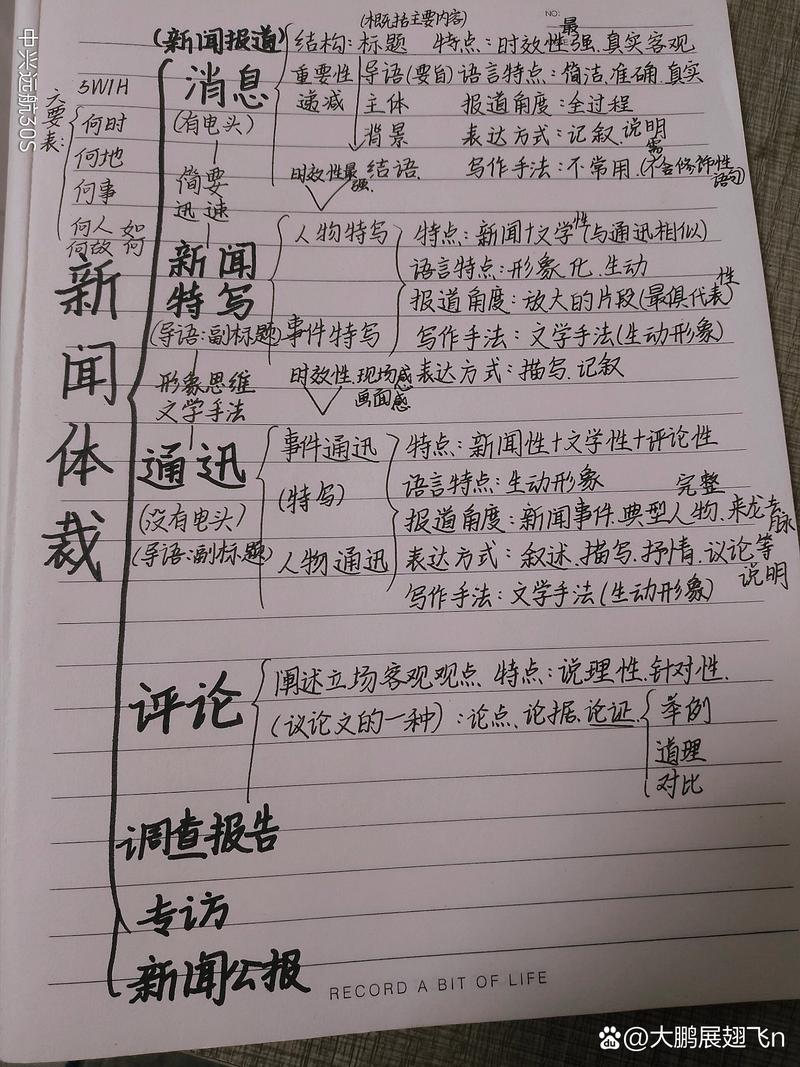 中兴远航30S
NO:
(概括主要内容)
(新闻报道) 结构:标题 特点:时效性最强.真实客观
消息 重要性 导语(要自) 语言特点:简洁.准确.真实
(有电头) 递减 主体 报道角度:全过程
背景 表达方式:记叙.说明
时效性最强. 结语. 写作手法:不常用.(不含修饰性语句)
六要素:
5W1H
何时
何地
何事
何人 如何
何故
简要
迅速
新闻体裁
新闻特写
(导语:副标题)
人物特写
事件特写
特点:新闻+文学性(与通讯相似)
语言特点:形象化.生动
报道角度:放大的片段(最俱代表性)
写作手法:文学手法(生动形象)
时效性.现场感 画面感
表达方式:描写.记叙
形象思维
文学手法
通迅
(没有电头)
(导语:副标题)
事件通迅
(特写)
人物通迅
特点:新闻性+文学性+评论性
语言特点:生动形象
报道角度:新闻事件.典型人物.完整来龙去脉
表达方式:叙述.描写.抒情.议论等 说明
写作手法:文学手法(生动形象)
评论
阐述立场客观观点. 特点:说理性.针对性.
(议论文的一种):论点、论据.论证
举例
道理
对比
调查报告
专访
新闻公报
RECORD A BIT OF LIFE
Bai du @大鹏展翅飞n